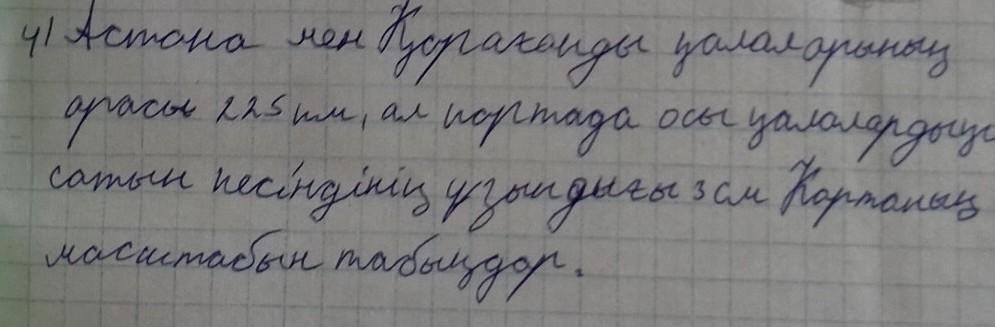 4) Астана мен Қарағанды қалаларының
арасы 225 км, ал картада осы қалалардың
сатын кесіндінің ұзындығы 3 см Картаның
масштабын табыңдар.